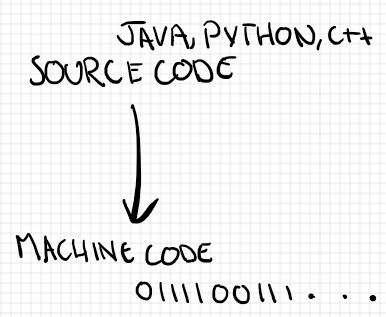 JAVA, PYTHON, C++
SOURCE CODE
MACHINE CODE
01111100111. . .